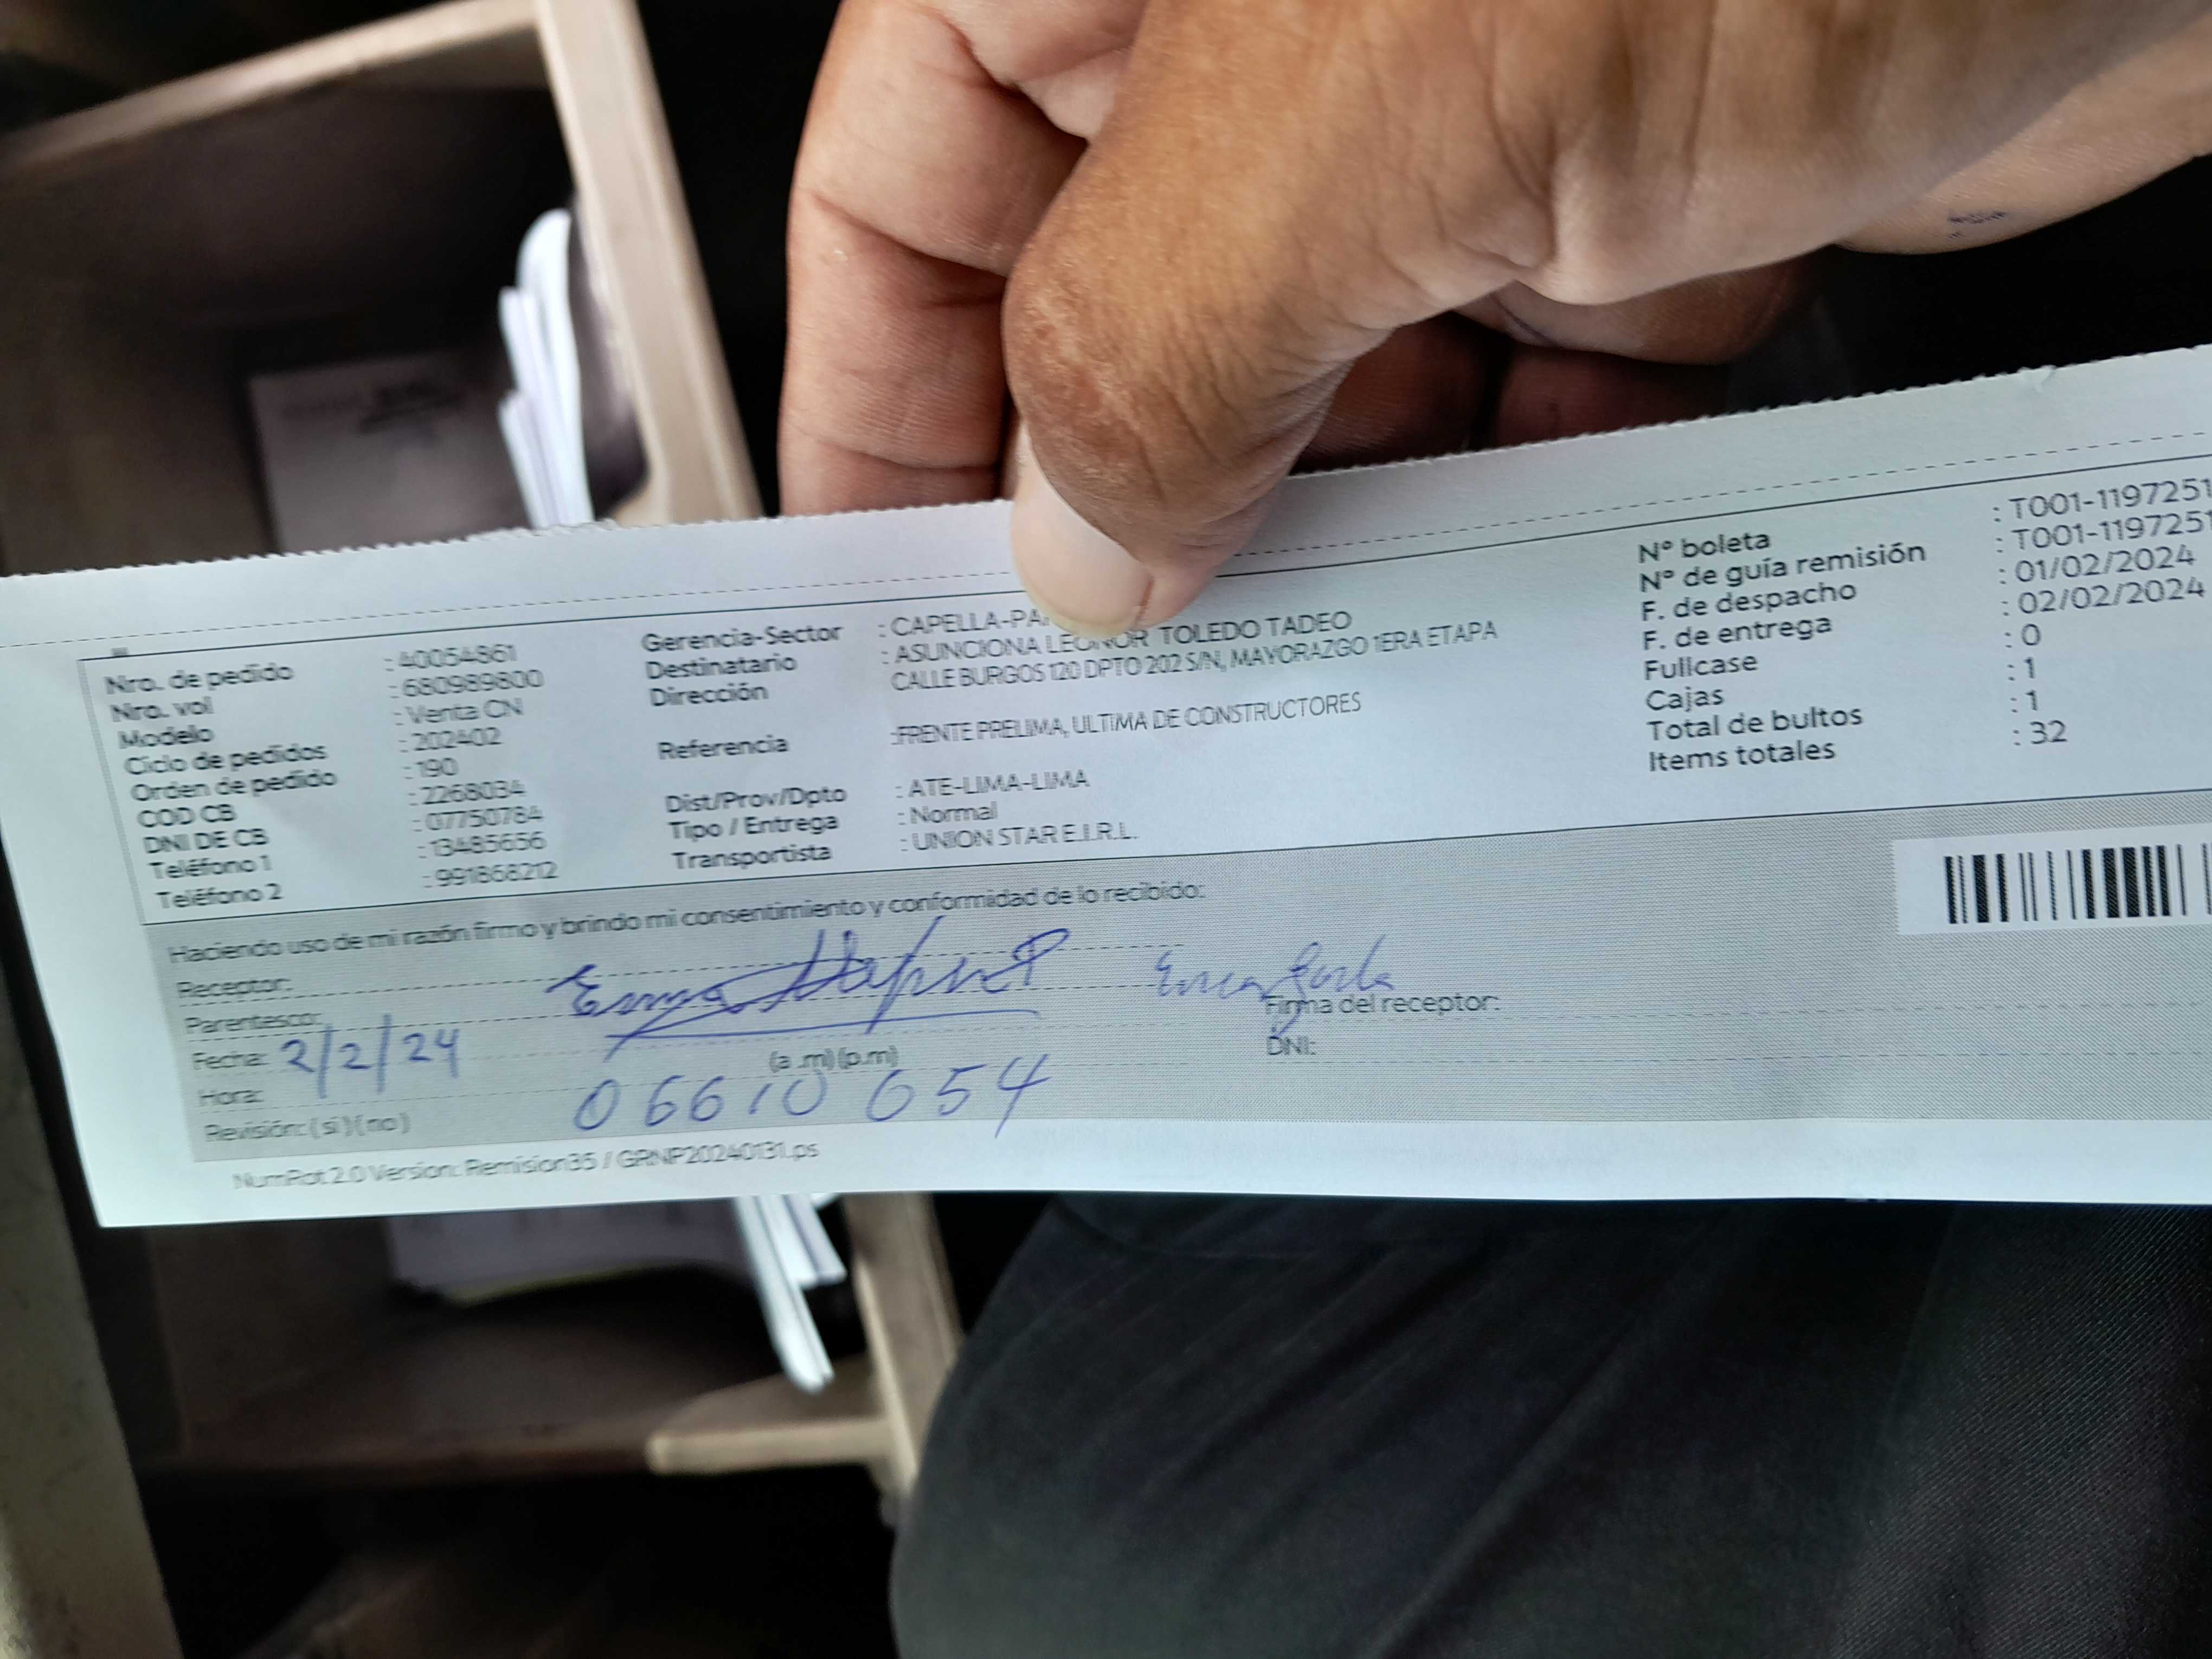 Nro. de pedido : 40054861
Nro. vol : 680989800
Modelo : Venta CN
Ciclo de pedidos : 202402
Orden de pedido : 190
COD CB : 2268034
DNI DE CB : 07750784
Teléfono 1 : 13485656
Teléfono 2 : 991868212
Gerencia-Sector : CAPELLA-PA
Destinatario : ASUNCIONA LEONOR TOLEDO TADEO
Dirección CALLE BURGOS 120 DPTO 202 S/N, MAYORAZGO 1ERA ETAPA
Referencia :FRENTE PRELIMA, ULTIMA DE CONSTRUCTORES
Dist/Prov/Dpto : ATE-LIMA-LIMA
Tipo / Entrega : Normal
Transportista : UNION STAR E.I.R.L.
Nº boleta : T001-1197251
Nº de guía remisión : T001-1197251
F. de despacho : 01/02/2024
F. de entrega : 02/02/2024
Fullcase : 0
Cajas : 1
Total de bultos : 1
Items totales : 32
Haciendo uso de mi razón firmo y brindo mi consentimiento y conformidad de lo recibido:
Receptor:
Parentesco:
Fecha: 2/2/24
Hora: (a .m) (p.m)
Revisión: ( si ) ( no ) 06610654
Firma del receptor:
DNI:
NumRot 2.0 Version: Remision35 / GRNP20240131.ps